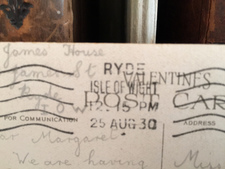 James House
James St
RYDE
ISLE OF WIGHT
VALENTINES
12.15 PM
POST CAR
FOR COMMUNICATION
25 AUG 30
ADDRESS
ar Margaret
We are having